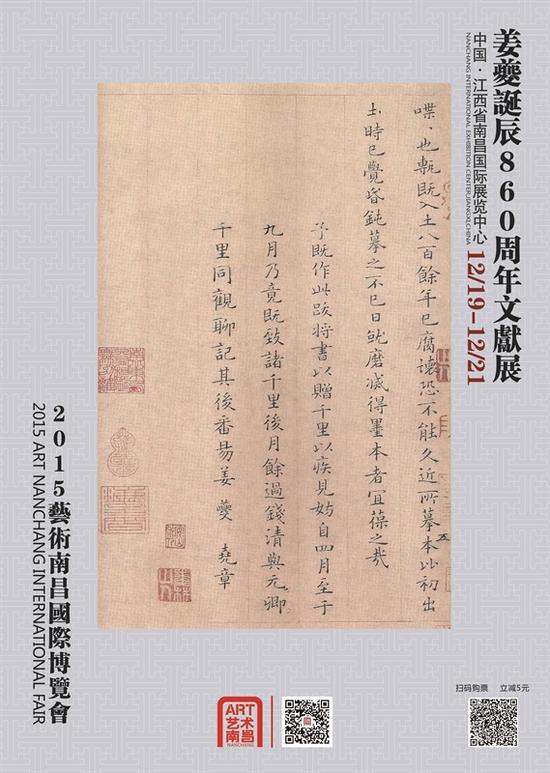 姜夔誕辰860周年文獻展
中国·江西省南昌国际展览中心
NANCHANG INTERNATIONAL EXHIBITION CENTER,JIANGXI,CHINA
12/19-12/21
喋、也甎既入土八百餘年已腐壞恐不能久近所摹本比初出
土時已覺昏鈍摹之不已日就磨滅得墨本者宜葆之哉
予既作此跋將書以贈千里以疾見妨自四月至于
九月乃竟既致諸千里後月餘過錢清與元卿
千里同觀聊記其後番昜姜夔堯章
2015藝術南昌國際博覽會
2015 ART NANCHANG INTERNATIONAL FAIR
ART
艺术
南昌
NANCHANG
扫码购票 立减5元